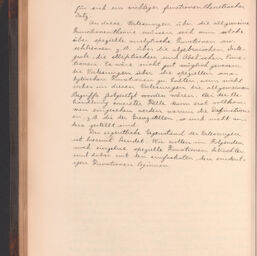 für sich ein wichtiger functionentheoretischer
Satz.
An diese Vorlesungen über die allgemeine
Functionentheorie müssen sich nun solche
über spezielle analytische Functionen an-
schliessen z.B. über die algebraischen Inte-
grale, die elliptischen und Abel'schen Func-
tionen. Es wäre nicht gut möglich gewesen
die Vorlesungen über die speziellen ana-
lytischen Functionen zu halten, wenn nicht
vorher in diesen Vorlesungen die allgemeinen
Begriffe festgesetzt worden wären. Bei der Be-
handlung
eingesehen werden warum die Definitionen
z.B. die der Grenzstellen, so und nicht an-
ders gestellt sind.
Der eigentliche Gegenstand der Vorlesungen
ist hiermit beendet. Wir wollen im Folgenden
noch einzelne spezielle Functionen betrachten
und dabei mit den einfachsten den eindeut-
igen Functionen beginnen.